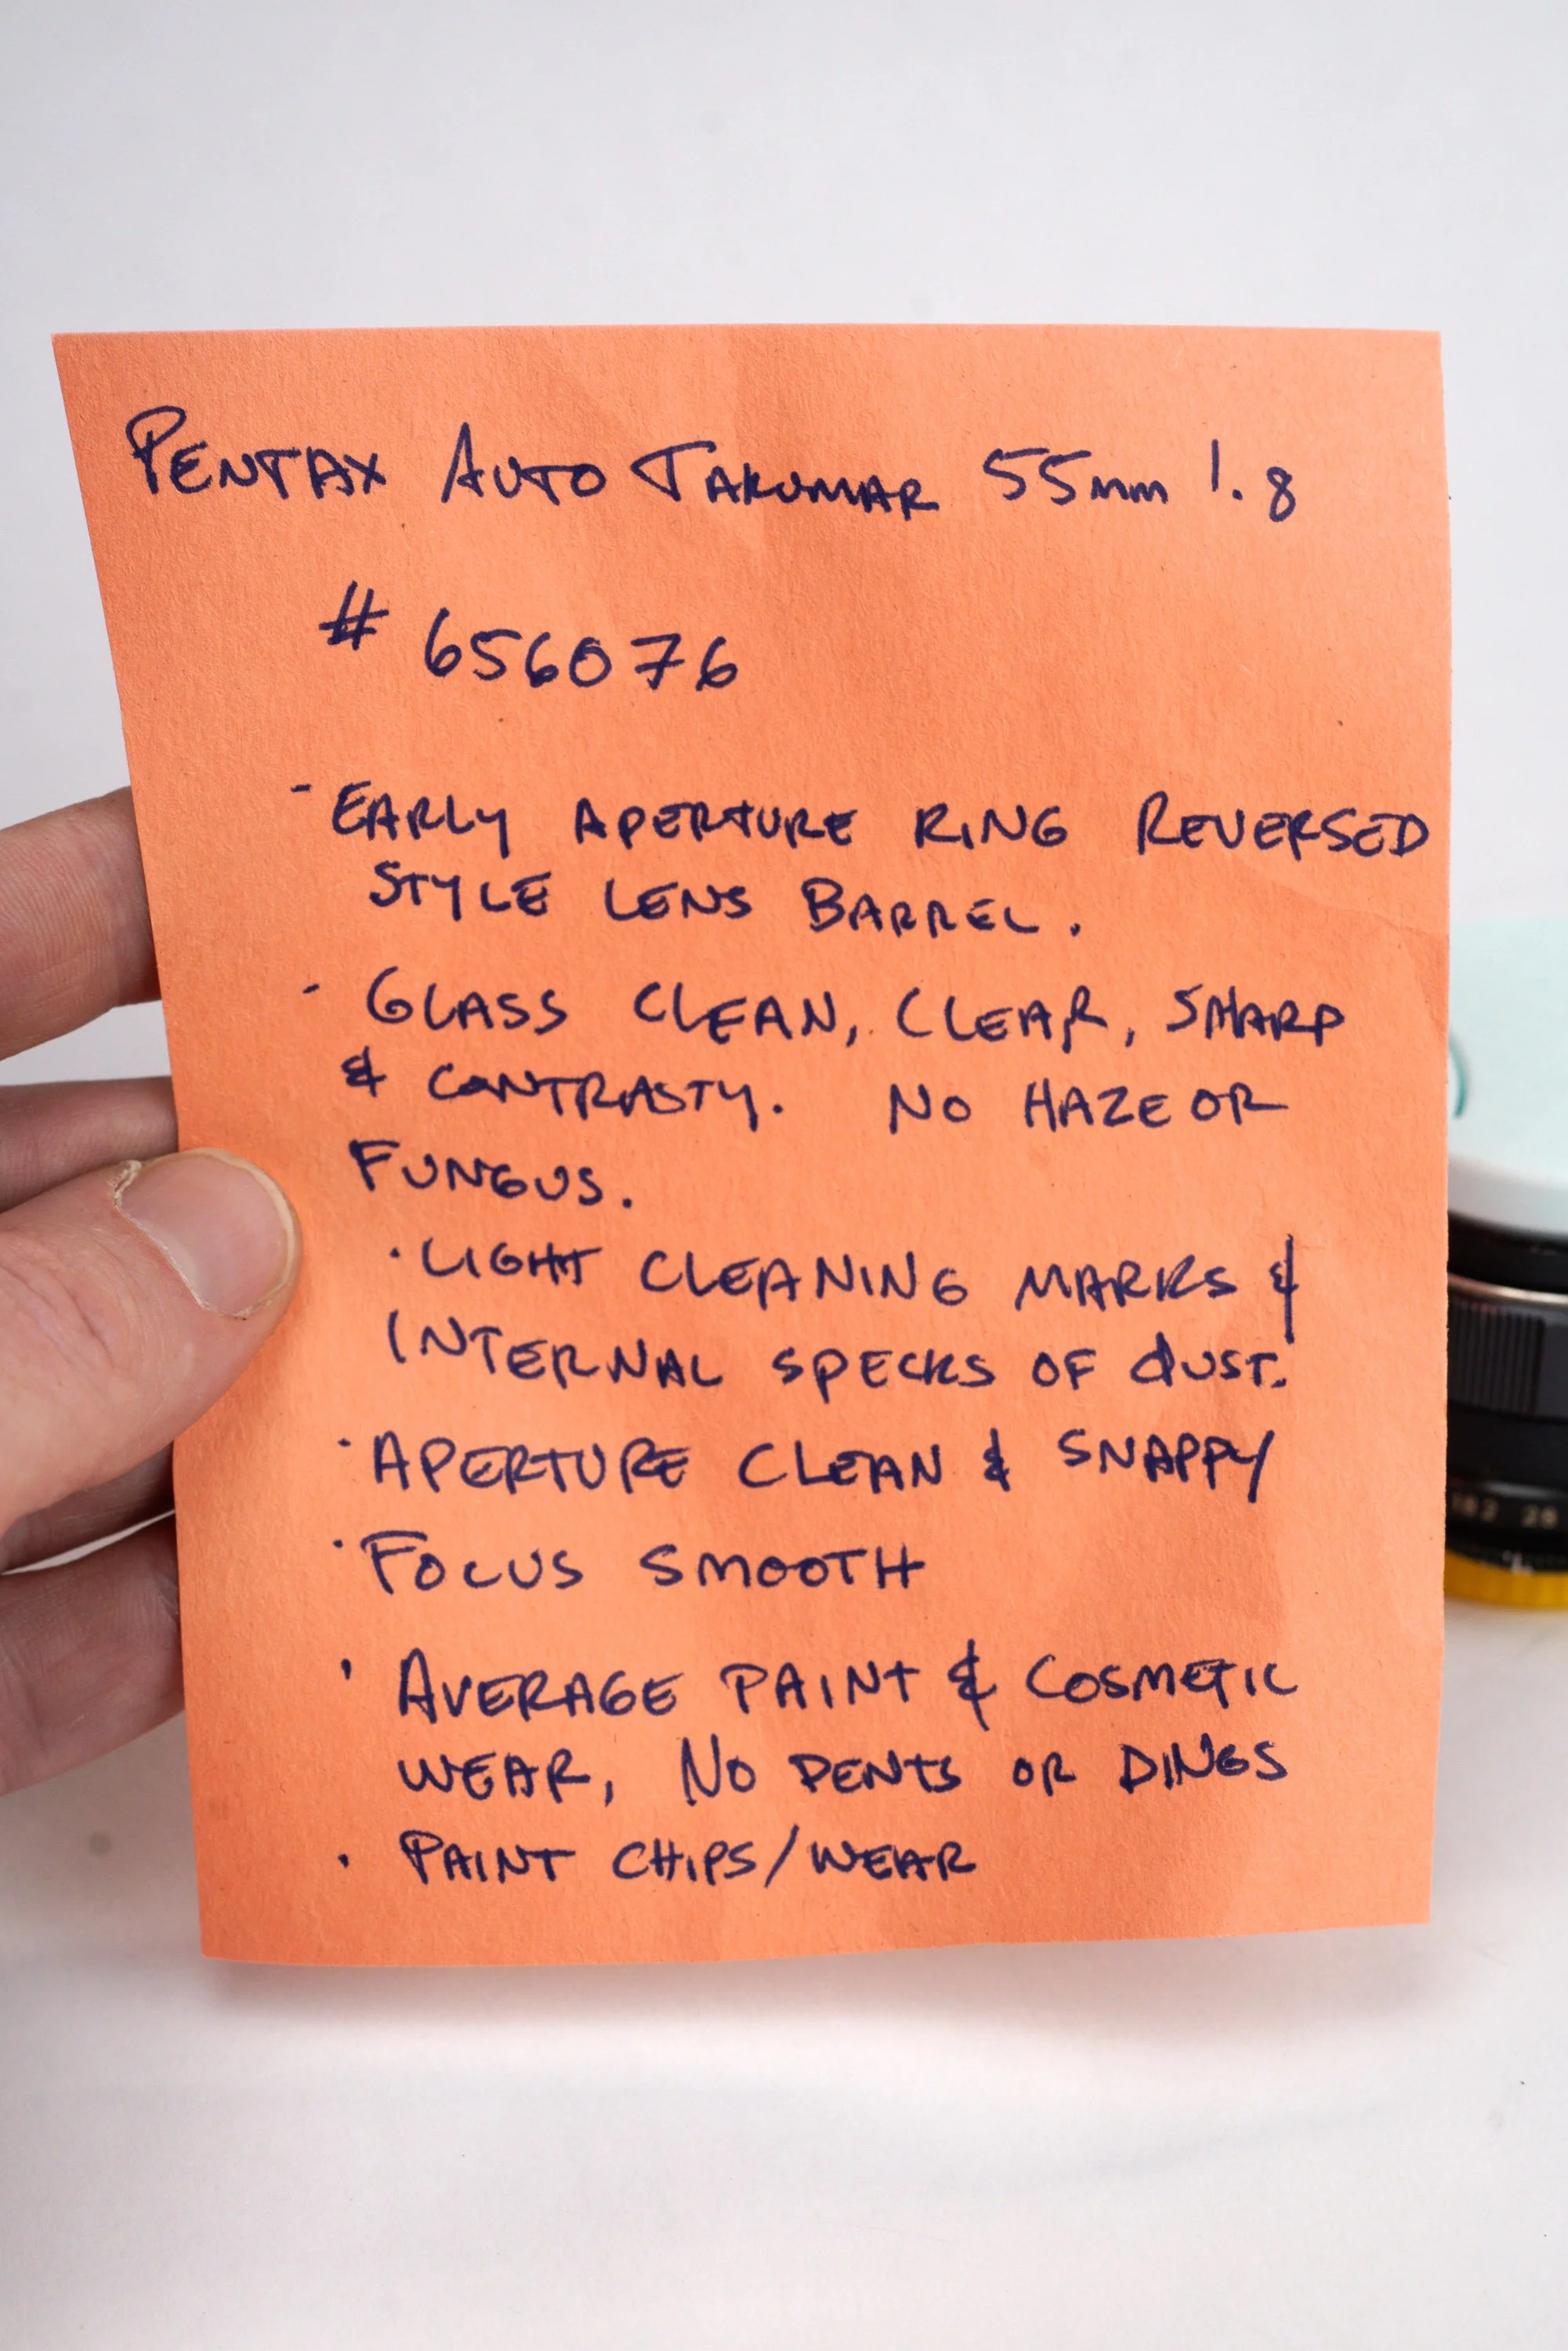 PENTAX AUTO TAKUMAR 55mm 1.8
# 656076
- EARLY APERTURE RING REVERSED
STYLE LENS BARREL.
- GLASS CLEAN, CLEAR, SHARP
& CONTRASTY. NO HAZE OR
FUNGUS.
· LIGHT CLEANING MARKS &
INTERNAL SPECKS OF dUST.
· APERTURE CLEAN & SNAPPY
· FOCUS SMOOTH
· AVERAGE PAINT & COSMETIC
WEAR, NO DENTS OR DINGS
· PAINT CHIPS/WEAR